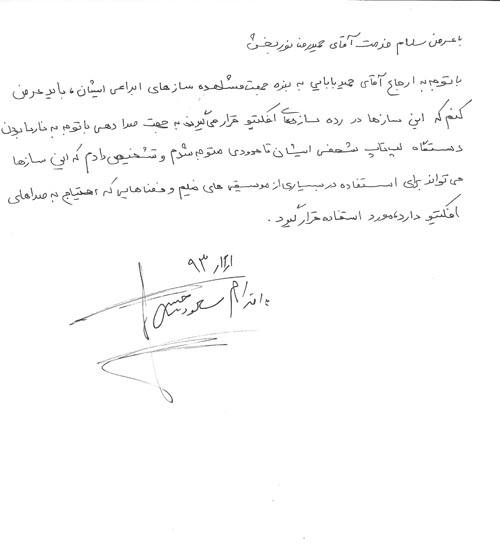 با عرض سلام خدمت آقای حمیدرضا نوربخش
با توجه به ارجاع آقای حمید بابایی به بنده جهت مشاهده سازهای ابداعی ایشان، باید عرض
کنم که این سازها در رده سازهای افکتیو قرار می‌گیرند به جهت صدا دهی با توجه به نارسا بودن
دستگاه لپ‌تاپ شخصی ایشان تا حدودی متوجه شدم و تشخیص دادم که این سازها
می‌تواند برای استفاده در بسیاری از موسیقی های فیلم و فضاهایی که احتیاج به صداهای
افکتیو دارد، مورد استفاده قرار گیرد.
۹۳
با احترام مسعود